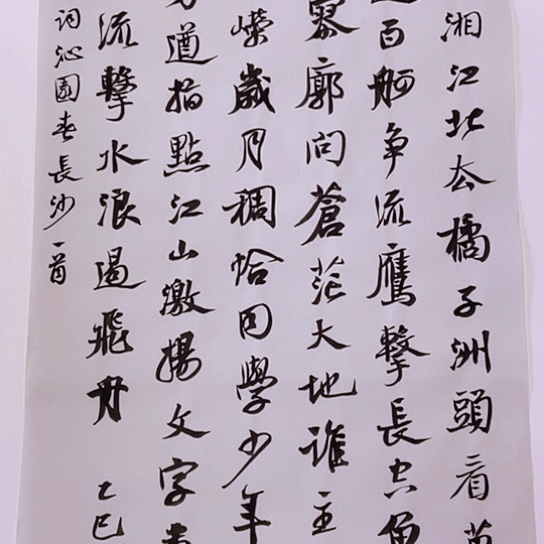 湘江北去橘子洲頭看萬
百舸争流鷹擊長空魚
寥廓問蒼茫大地誰主
嶸歲月稠恰同學少年
遒指點江山激揚文字
流擊水浪遏飛舟 乙巳
词沁園春長沙一首